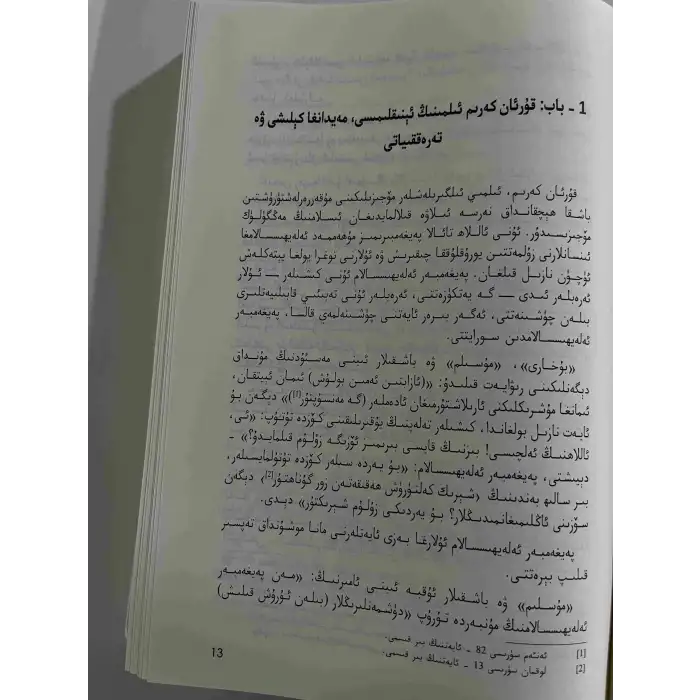 1 - باب: قۇرئان كەرىم ئىلمىنىڭ ئېنىقلىمىسى، مەيدانغا كېلىشى ۋە
تەرەققىياتى
قۇرئان كەرىم، ئىلمىي ئىلگىرىلەشلەر مۆجىزىلىكىنى مۇقەررەرلەشتۈرۈشتىن
باشقا ھېچقانداق نەرسە ئىلاۋە قىلالمايدىغان ئىسلامنىڭ مەڭگۈلۈك
مۆجىزىسىدۇر. ئۇنى ئاللاھ تائالا پەيغەمبىرىمىز مۇھەممەد ئەلەيھىسسالامغا
ئىنسانلارنى زۇلمەتتىن يورۇقلۇققا چىقىرىش ۋە ئۇلارنى توغرا يولغا يېتەكلەش
ئۈچۈن نازىل قىلغان. پەيغەمبەر ئەلەيھىسسالام ئۇنى كىشىلەر — ئۇلار
ئەرەبلەر ئىدى — گە يەتكۈزەتتى، ئەرەبلەر ئۇنى تەبىئىي قابىلىيەتلىرى
بىلەن چۈشىنەتتى، ئەگەر بىرەر ئايەتنى چۈشىنەلمەي قالسا، پەيغەمبەر
ئەلەيھىسسالامدىن سورايتتى.
«بۇخارى»، «مۇسلىم» ۋە باشقىلار ئىبنى مەسئۇدنىڭ مۇنداق
دېگەنلىكىنى رىۋايەت قىلىدۇ: «(ئازابتىن ئەمىن بولۇش) ئىمان ئېيتقان،
ئىمانغا مۇشرىكلىكنى ئارىلاشتۇرمىغان ئادەملەر (گە مەنسۇپتۇر[1])» دېگەن بۇ
ئايەت نازىل بولغاندا، كىشىلەر تەلەپنىڭ يۇقىرىلىقىنى كۆزدە تۇتۇپ: «ئى،
ئاللاھنىڭ ئەلچىسى! بىزنىڭ قايسى بىرىمىز ئۆزىگە زۇلۇم قىلمايدۇ؟» -
دېيىشتى، پەيغەمبەر ئەلەيھىسسالام: «بۇ يەردە سىلەر كۆزدە تۇتۇلمايسىلەر،
بىر سالىھ بەندىنىڭ ‹شېرىك كەلتۈرۈش ھەقىقەتەن زور گۇناھتۇر[2]› دېگەن
سۆزىنى ئاڭلىمىغانمىدىڭلار؟ بۇ يەردىكى زۇلۇم شېرىكتۇر» دېدى.
پەيغەمبەر ئەلەيھىسسالام ئۇلارغا بەزى ئايەتلەرنى مانا موشۇنداق تەپسىر
قىلىپ بېرەتتى.
«مۇسلىم» ۋە باشقىلار ئۇقبە ئىبنى ئامىرنىڭ: «مەن پەيغەمبەر
ئەلەيھىسسالامنىڭ مۇنبەردە تۇرۇپ «دۈشمەنلىرىڭلار (بىلەن ئۇرۇش قىلىش)
[1] ئەنئەم سۈرىسى 82 - ئايەتنىڭ بىر قىسمى.
[2] لوقمان سۈرىسى 13 - ئايەتنىڭ بىر قىسمى.
13